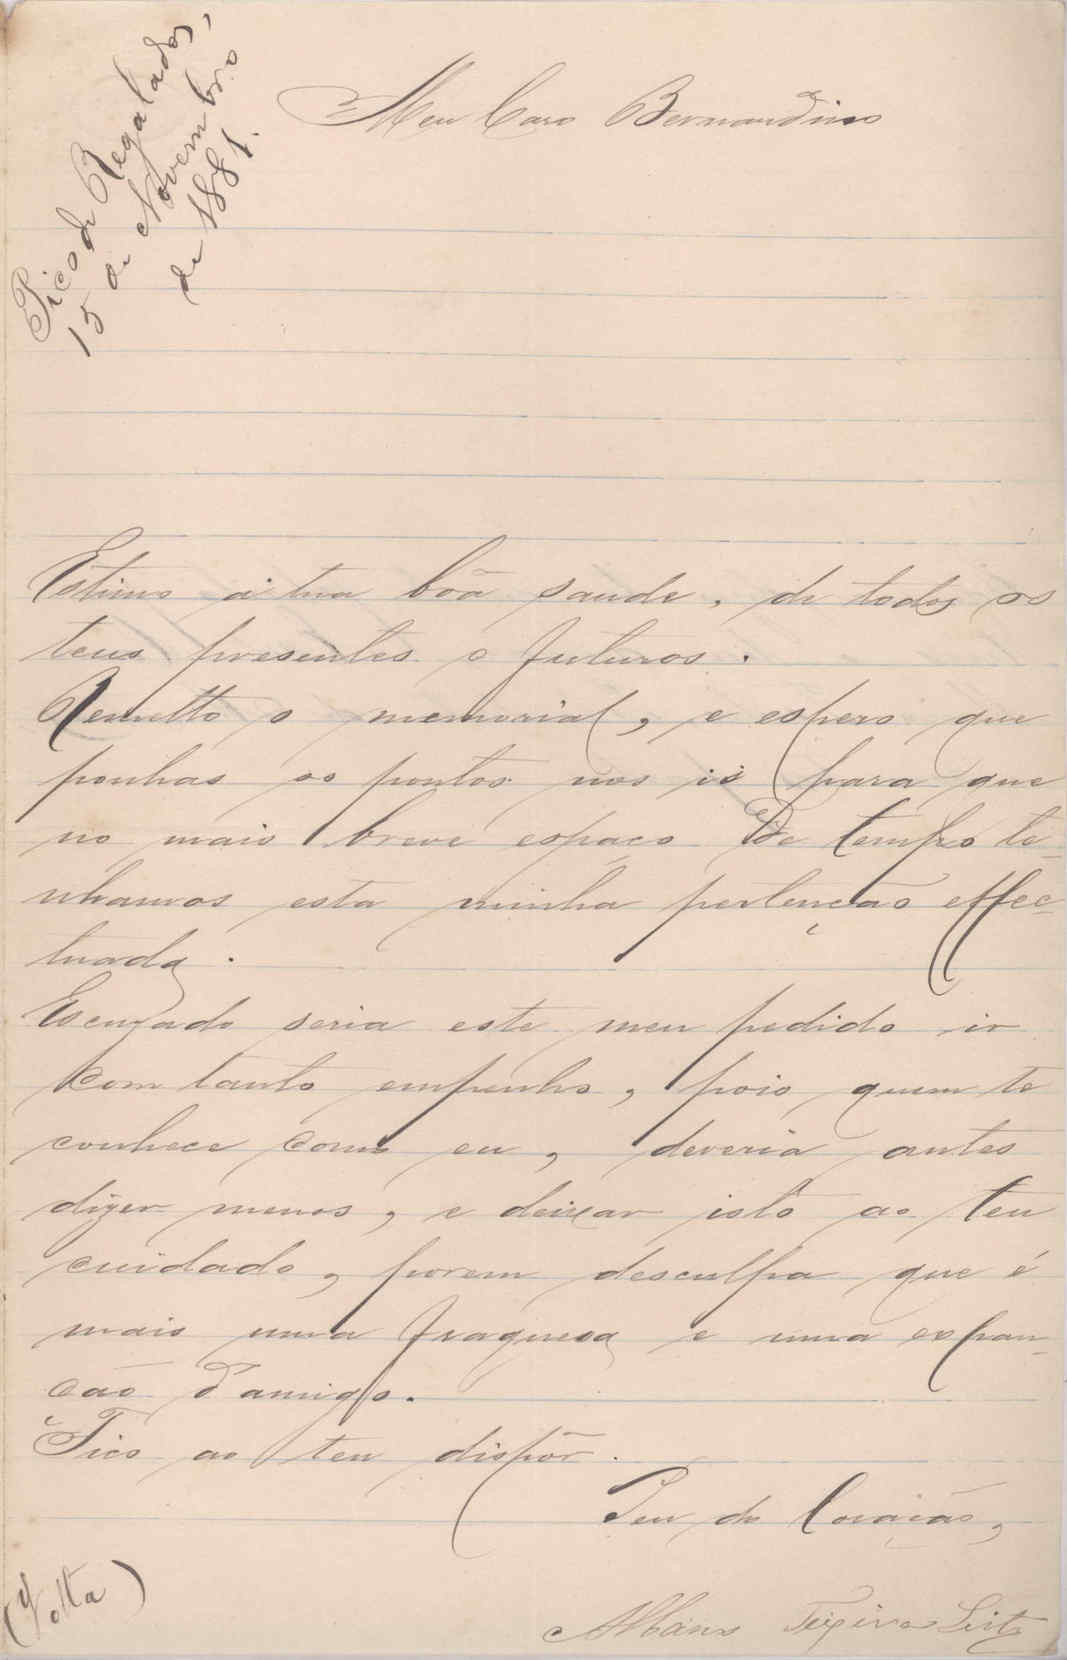 Pico de Regalados,
15 de Novembro
de 1881.
Meu Caro Bernardino
Estimo a tua bôa saude, de todos os
teus presentes e futuros.
Remetto o memorial, e espero que
ponhas os pontos nos is para que
no mais breve espaço de tempo te-
nhamos esta minha pertenção effec-
tuada.
Escuzado seria este meu pedido ir
com tanto empenho, pois quem te
conhece como eu, deveria antes
dizer menos, e deixar isto ao teu
cuidado, porem desculpa que é
mais uma fraquesa e uma expan-
ção d'amigo.
Fico ao teu dispôr.
Teu do Coração,
Albano Teixeira Leite
(Volta)